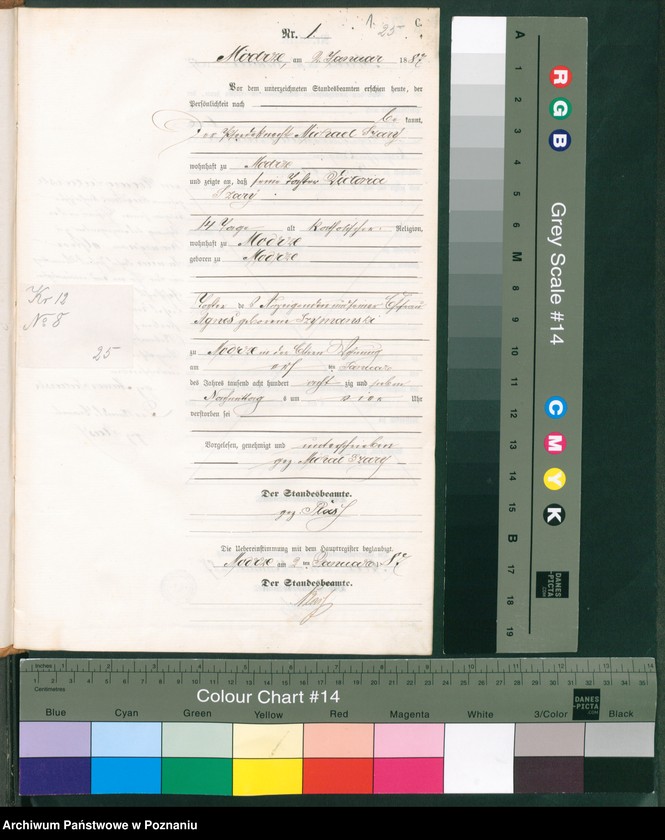 1. 25 C.
Nr. 1
Modrze, am 2 Januar 1887
Vor dem unterzeichneten Standesbeamten erschien heute, der
Persönlichkeit nach
be kannt,
Der Pferdeknecht Michael Szary
wohnhaft zu Modrze
und zeigte an, daß seine Tochter Victoria
Szary
14 Tage alt katholischer Religion,
wohnhaft zu Modrze
geboren zu Modrze
Tochter des Anzeigenden und seiner Ehefrau
Agnes geborene Szymanski
zu Modrze in der Eltern Wohnung
am Januar
des Jahres tausend acht hundert acht zig und sieben
Nachmittag s um vier Uhr
verstorben sei
Vorgelesen, genehmigt und unterschrieben
gez Szary
Der Standesbeamte.
gez.
Die Uebereinstimmung mit dem Hauptregister beglaubigt.
Modrze am 2 ten Januar 87
Der Standesbeamte.
Kr 12
No 8
25
A 1 2 3 4 5 6 M 8 9 10 11 12 13 14 15 B 17 18 19
R G B
Grey Scale #14
C M Y K
DANES-PICTA.COM
Inches 1 2 3 4 5 6 7 8 9 10 11 12 13 14
Centimetres
Colour Chart #14
DANES-PICTA.COM
Blue Cyan Green Yellow Red Magenta White 3/Color Black
Archiwum Państwowe w Poznaniu